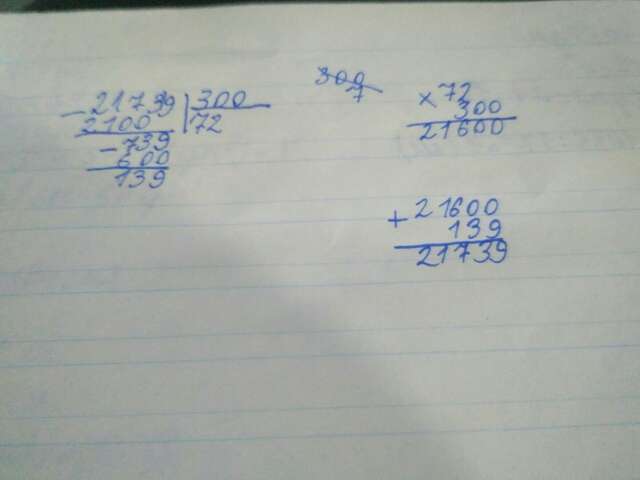 - 21739 | 300
2100 | 72
- 739
600
139
300
7
× 72
300
21600
+ 21600
139
21739